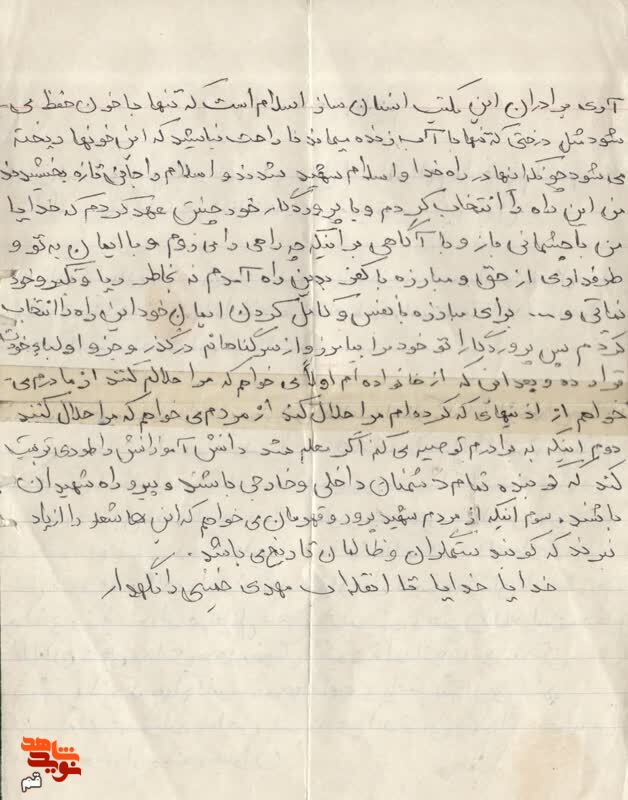 آری برادران این مکتب انسان ساز اسلام است که تنها با خون حفظ می
شود مثل درختی که تنها با آب زنده میماند ناراحت نباشید که این خونها ریخته
می شود چونکه اینها در راه خدا و اسلام شهید شدند و اسلام را جانی تازه بخشیدند
من این راه را انتخاب کردم و با پروردگار خود چنین عهد کردم که خدایا
من با چشمانی باز و با آگاهی بر اینکه چه راهی را می روم و با ایمان به تو و
طرفداری از حق و مبارزه با کفر بدین راه آمدم نه بخاطر ریا و تکبر و خود
نمائی و ... برای مبارزه با نفس و کامل کردن ایمان خود این راه را انتخاب
کردم پس پروردگارا تو خود مرا بیامرز و از سر گناهانم درگذر و جزو اولیاء خودت
قرار ده و بعد این که از خانواده ام اولاً می خواهم که مرا حلالم کنند از مادرم می
خواهم از اذیتهائی که کرده ام مرا حلال کند از مردم می خواهم که مرا حلال کنند
دوم اینکه به برادرم توصیه می که اگر معلم شد دانش آموزانش را طوری تربیت
کند که کوبنده تمام دشمنان داخلی و خارجی باشند و پیرو راه شهیدان
باشند. سوم اینکه از مردم شهید پرور و قهرمان می خواهم که این شعار را از یاد
نبرند که کوبند ستمگران و ظالمان تاریخ می باشد.
خدایا خدایا تا انقلاب مهدی خمینی را نگهدار
نوید شاهد
قم